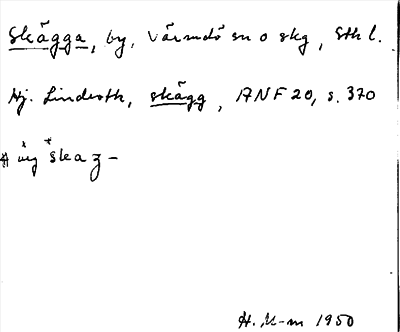 Skägga, by, Värmdö sn o skg, Sthl.
Hj. Lindroth, skägg, ANF 20, s. 370
H. M-m 1950